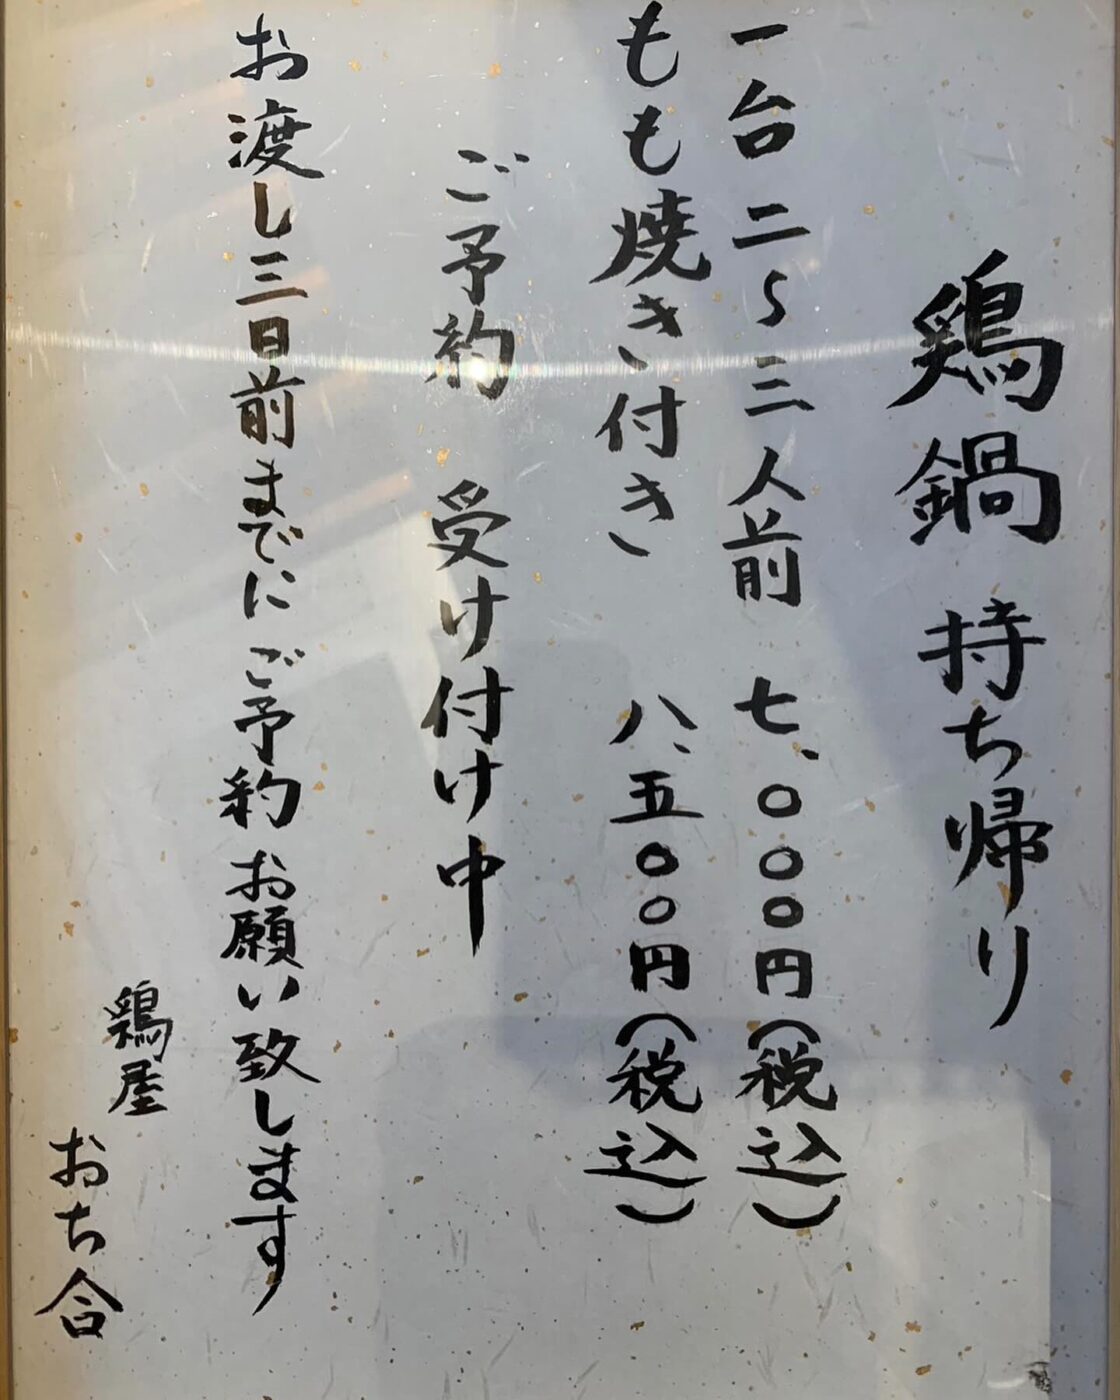 鶏鍋 持ち帰り
一台 二〜三人前 七、〇〇〇円（税込）
もも焼き付き 八、五〇〇円（税込）
ご予約 受け付け中
お渡し三日前までにご予約お願い致します
鶏屋
おち合